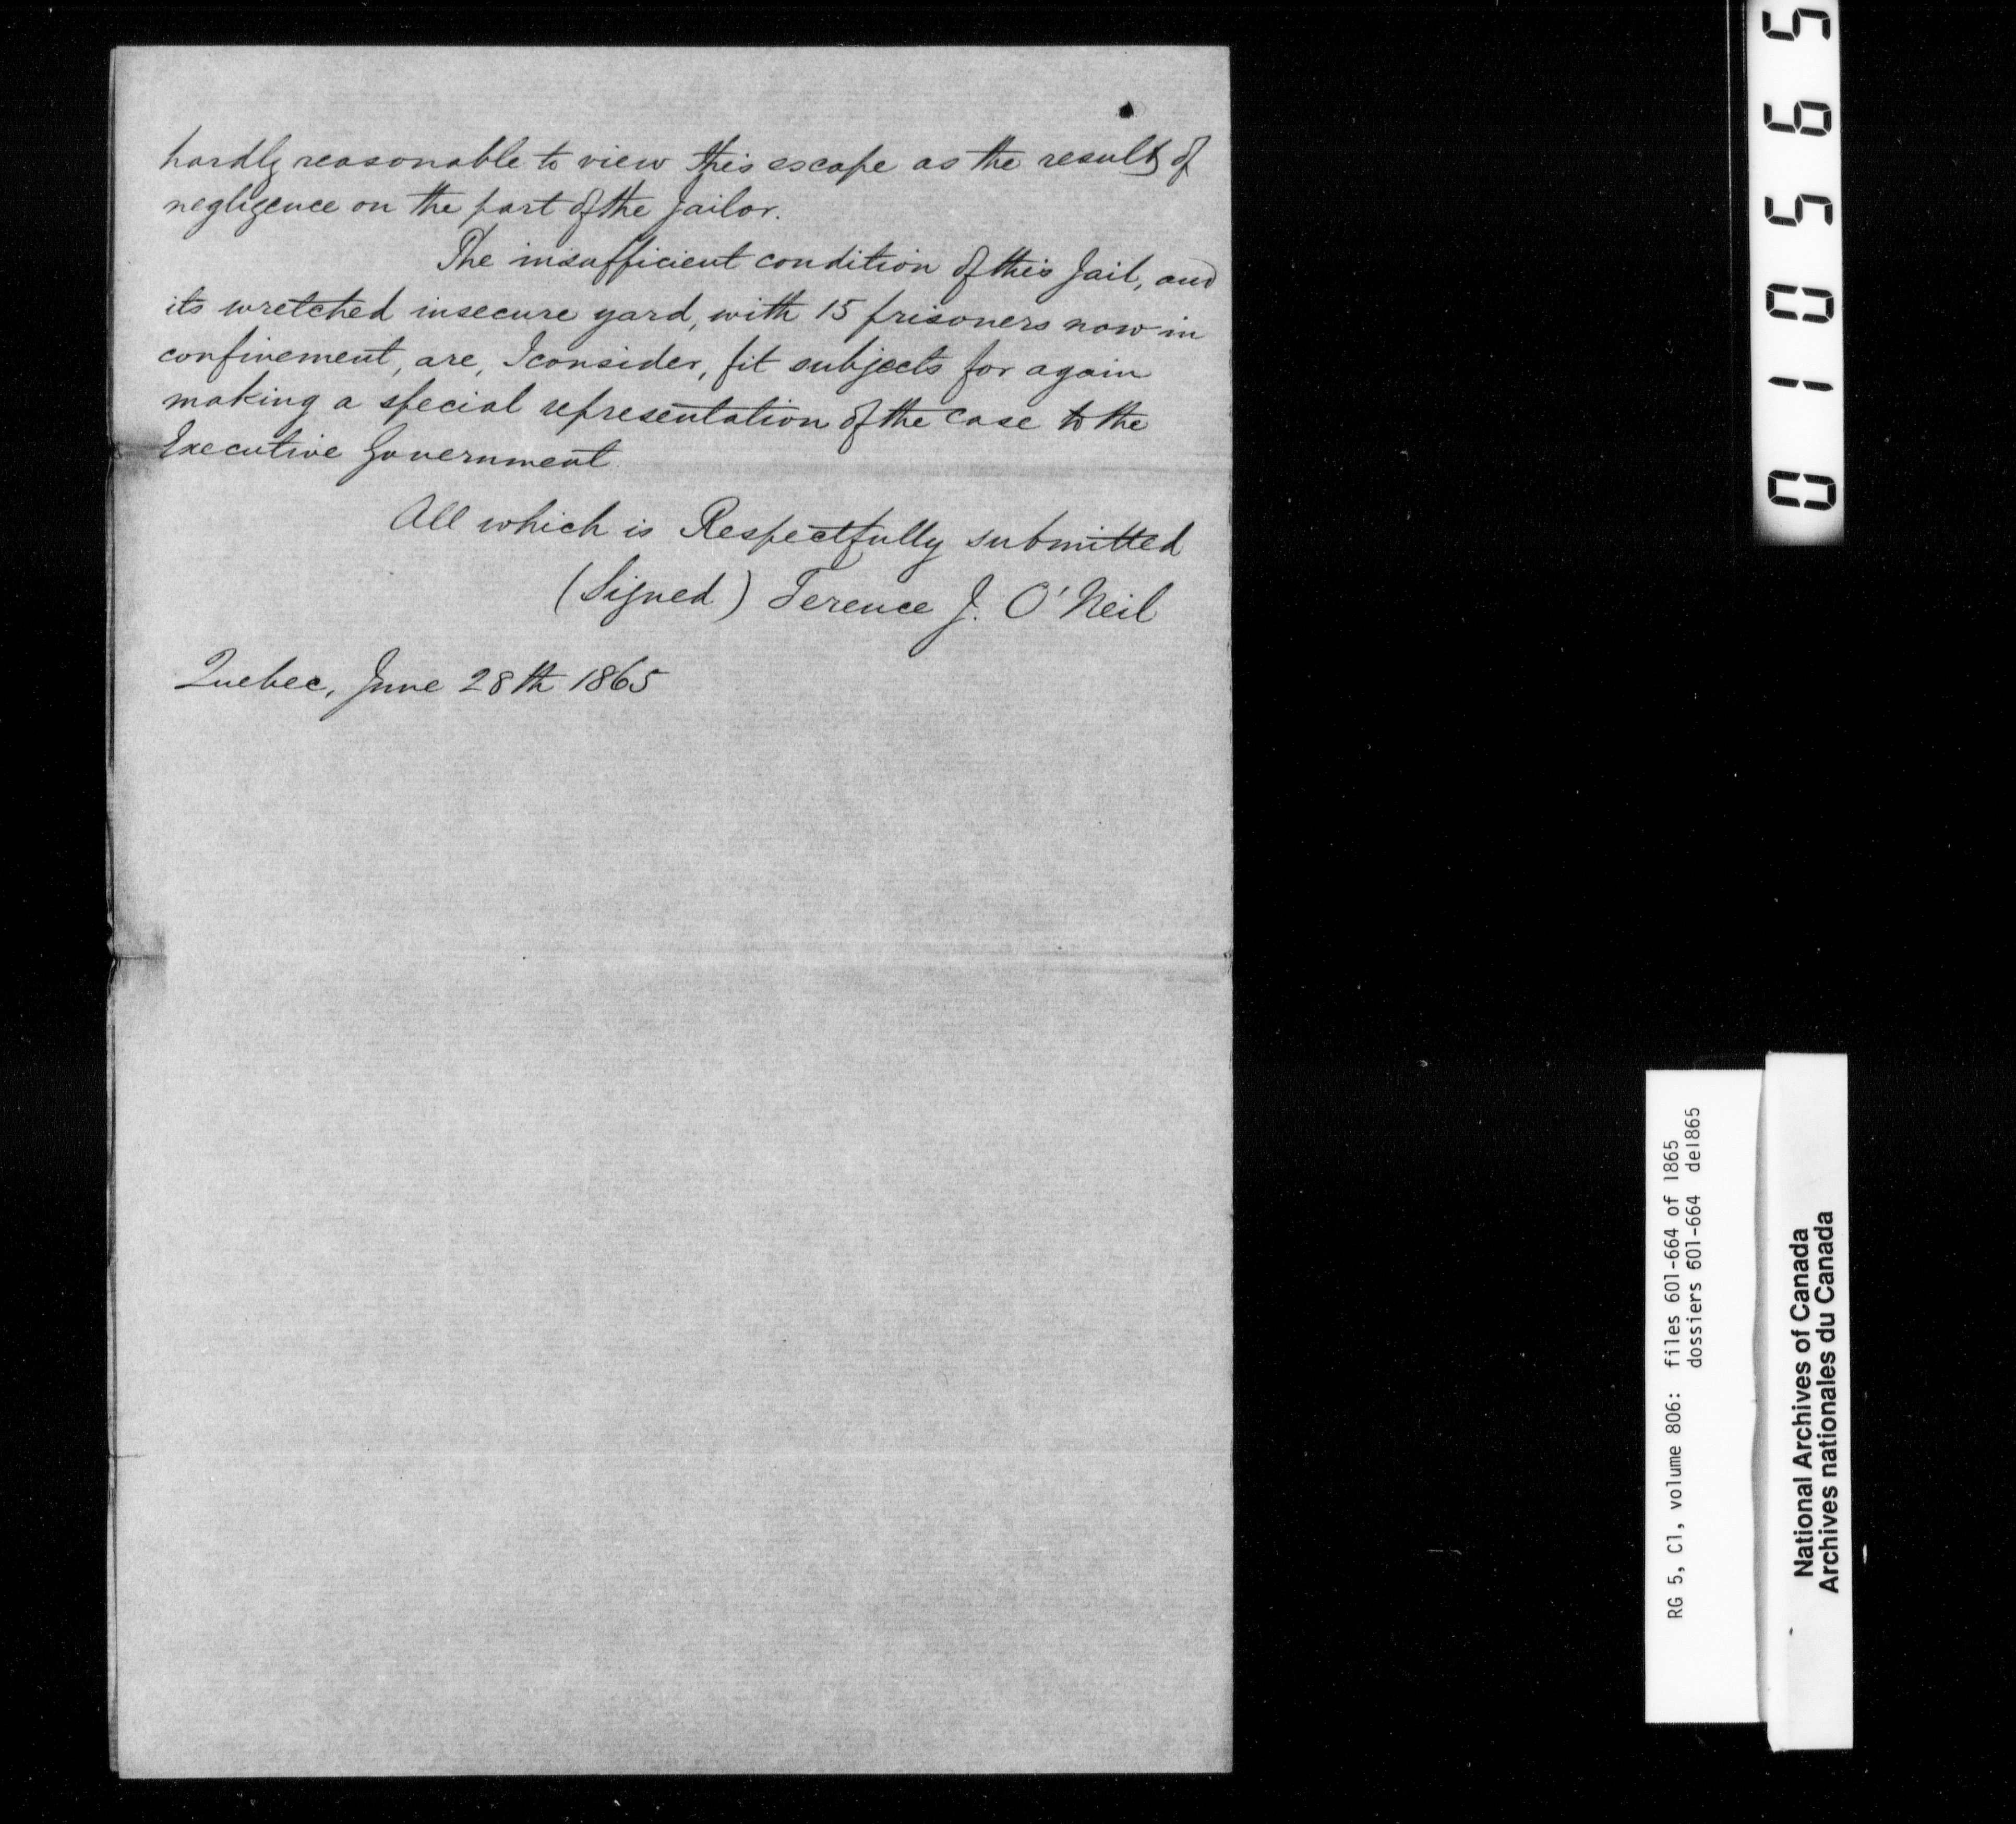 hardly reasonable to view this escape as the result of
negligence on the part of the Jailor.
The insufficient condition of this Jail, and
its wretched insecure yard, with 15 prisoners now in
confinement, are, I consider, fit subjects for again
making a special representation of the case to the
Executive Government.
All which is Respectfully submitted
(Signed) Terence J. O'Neil
Quebec, June 28th 1865
010565
RG 5, C1, volume 806: files 601-664 of 1865
dossiers 601-664 de1865
National Archives of Canada
Archives nationales du Canada